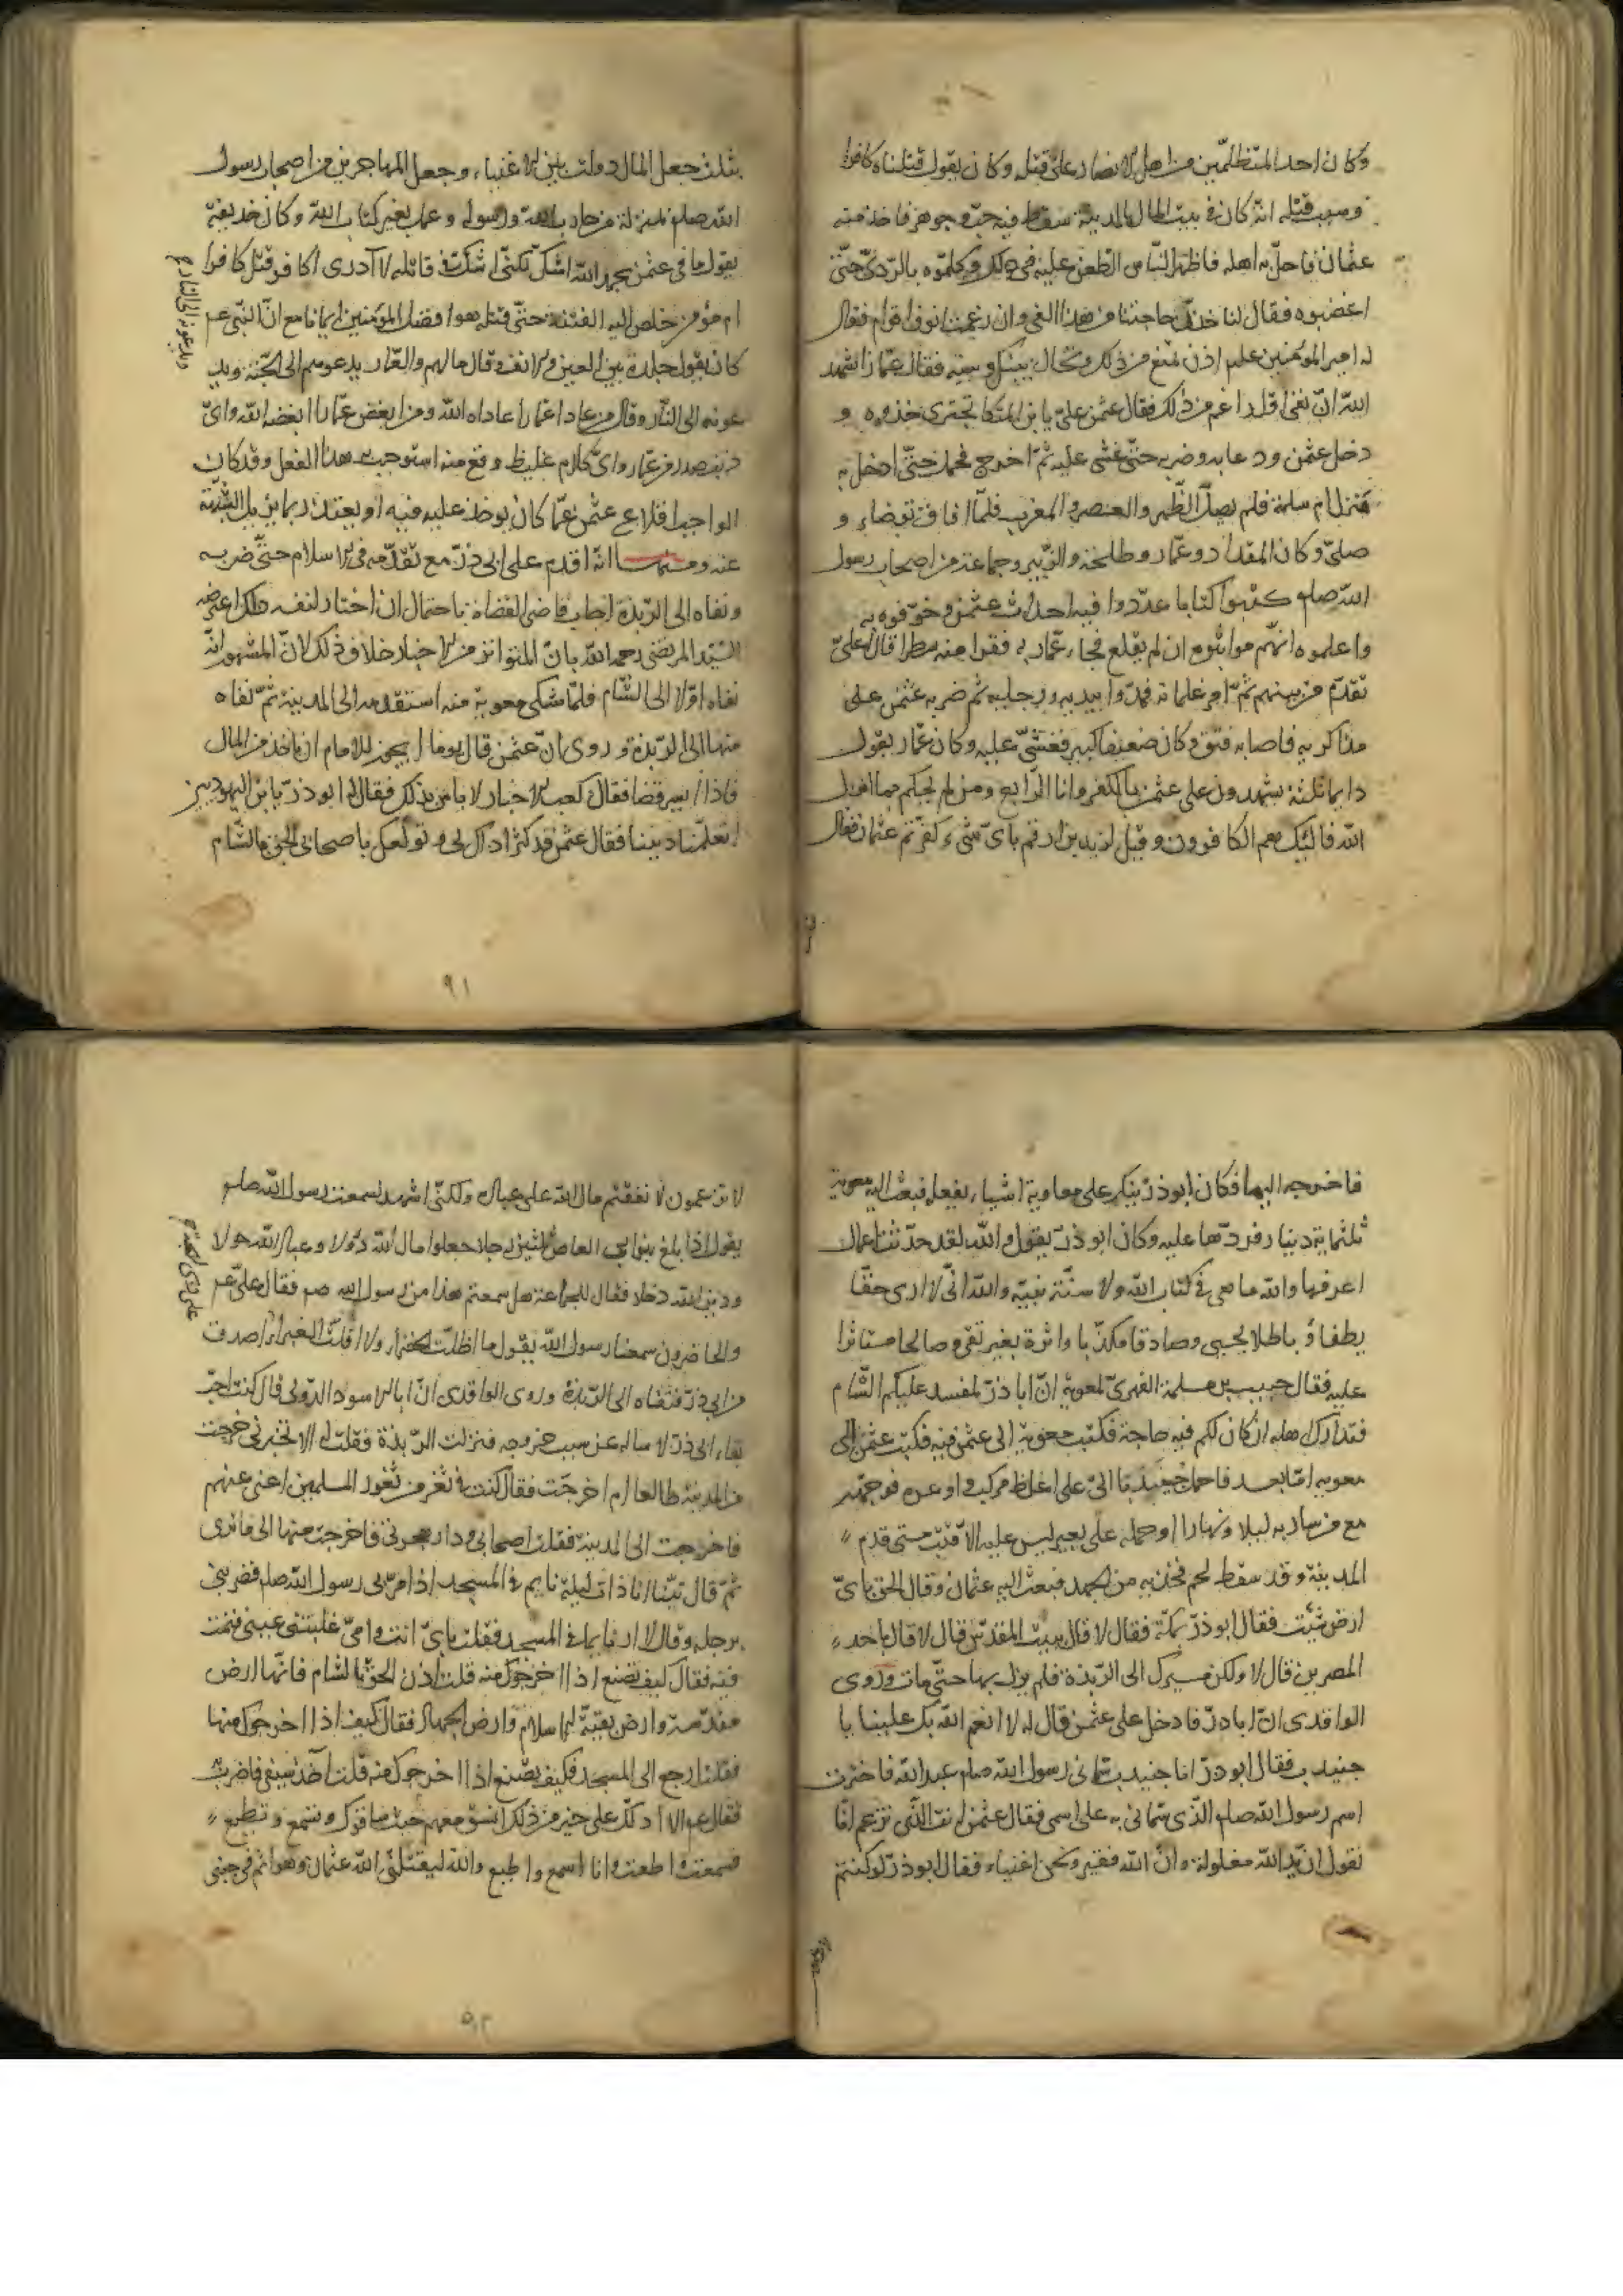 وكان احد المتظلمين من اهل الانصار على قتله وكان يقول قتلناه كافرا
وسبب قتله انه كان في بيت المال بالمدينة سقط فيه حب وجوهر فاخذ منه
عثمان فاحل به اهله فاظهر الناس الطعن عليه في ذلك وكلموه بالردى حتى
اغضبوه فقال لنا خذن حاجتنا من هذا الفئ وان رغمت انوف اقوام فقال
له امير المؤمنين علم اذن تمنع من ذلك ويحال بينك وبينه فقال عمار اشهد
الله ان انفى اول راغم من ذلك فقال عثمن على يا بن المتكا تجترى خذوه و
دخل عثمن ودعا به وضربه حتى غشى عليه ثم اخرج فحمل حتى ادخل به
منزل ام سلمة فلم يصل الظهر والعصر والمغرب فلما افاق توضاء و
صلى وكان المقداد وعمار وطلحة والزبير وجماعة من اصحاب رسول
الله صلم كتبوا كتابا عددوا فيه احداث عثمن وخوفوه به
واعلموه انهم مواثبوه ان لم يقلع فجاء عمار به فقرا منه سطرا قال اعلىّ
تقدم من بينهم ثم امر غلمانه فمدوا بيديه ورجليه ثم ضربه عثمن على
مذاكريه فاصابه فتق وكان ضعيفا كبير فغشى عليه وكان عمار يقول
دايما ثلثة يشهدون على عثمن بالكفر وانا الرابع ومن لم يحكم بما انزل
الله فاولئك هم الكافرون وقيل لزيد بن ارقم باى شىء كفرتم عثمان فقال
بثلث جعل المال دولت بين الاغنياء وجعل المهاجرين من اصحاب رسول
الله صلم بمنزلة من حارب الله ورسوله وعمل بغير كتاب الله وكان حذيفة
يقول ما في عثمن بحمد الله اشك لكنى اشك في قاتله لا آدرى اكافر قتل كافرا
ام مؤمن خلص اليه الفتنة حتى قتله هو افضل المؤمنين ايمانا مع ان النبى عم
كان يقول جلدة بين العين والانف وقال مالهم والعمار يدعوهم الى الجنة ويد
عونه الى النار وقال من عادا عمارا عاداه الله ومن ابغض عمارا ابغضه الله واى
ذنب صدر من عمار واى كلام غليظ وقع منه استوجب به هذا الفعل وقد كان
الواجب اقلاع عثمن عما كان يوخذ عليه فيه او يعتذر بما يزيل الشبهة
عنه ومنها انه اقدم على ابى ذر مع تقدمه في الاسلام حتى ضربه
ونفاه الى الربذة اجاب قاضى القضاة باحتمال ان اختار لنفسه ذلك اعترضه
السيد المرتضى رحمه الله بان المتواتر من الاخبار خلاف ذلك لان المشهور انه
نفاه اولا الى الشام فلما شكى معوية منه استقدمه الى المدينة ثم نفاه
منها الى الربذة وروى ان عثمن قال يوما ايجوز للامام ان ياخذ من المال
فاذا ايسر قضا فقال كعب الاحبار لا باس بذلك فقال له ابو ذر يا بن اليهوديين
اتعلمنا ديننا فقال عثمن قد كثر اذاك لى وتولعك باصحابى الحق بالشام
ويدعونه الى النار
٩١
فاخرجه اليها فكان ابو ذر ينكر على معاوية اشياء يفعله فبعث اليه معوية
ثلثماية دينار فردها عليه وكان ابو ذر يقول والله لقد حدثت اعمال
اعرفها والله ما هى في كتاب الله ولا سنة نبيه والله انى لا ارى حقا
يطفاؤ باطلا يحيى وصادقا مكذبا واثرة بغير تقى وصالحا مستاثرا
عليه فقال حبيب بن مسلمة الفهرى لمعوية ان ابا ذر لمفسد عليكم الشام
فتدارك اهله ان كان لكم فيه حاجة فكتب معوية الى عثمن فيه فكتب عثمن الى
معويه اما بعد فاحمل جنيدبا الىّ على اغلظ مركب واوعره فوجهه
مع من سار به ليلا ونهارا وحمله على بعير ليس عليه الا قتب حتى قدم
المدينة وقد سقط لحم فخذيه من الجهد فبعث اليه عثمان وقال الحق باى
ارض شئت فقال ابو ذر بمكة فقال لا قال ببيت المقدس قال لا قال باحد
المصرين قال لا ولكن مسيرك الى الربذة فلم يزل بها حتى مات وروى
الواقدى ان ابا ذر فادخل على عثمن قال له لا انعم الله بك علينا يا
جنيدب فقال ابو ذر انا جنيدب سمانى رسول الله صلم عبد الله فاخترت
اسم رسول الله صلم الذى سمانى به على اسمى فقال عثمن انت الذى تزعم انا
نقول ان يد الله مغلولة وان الله فقير ونحن اغنياء فقال ابو ذر لو كنتم
لا تزعمون لانفقتم مال الله على عباده ولكنى اشهد لسمعت رسول الله صلم
يقول اذا بلغ بنو ابى العاص ثلثين رجلا جعلوا مال الله دولا وعباد الله خولا
ودين الله دخلا فقال للجماعة هل سمعتم هذا من رسول الله صم فقال على عم
والحاضرون سمعنا رسول الله يقول ما اظلت الخضراء ولا اقلت الغبراء اصدق
من ابى ذر فنفاه الى الربذة وروى الواقدى ان ابا الاسود الدولى قال كنت احب
لقاء ابى ذر لاساله عن سبب خروجه فنزلت الربذة فقلت له الا تخبرنى خرجت
من المدينة طائعا ام اخرجت فقال كنت في ثغر من ثغور المسلمين اغنى عنهم
فاخرجت الى المدينة فقلت اصحابى ودار هجرتى فاخرجت منها الى ما ترى
ثم قال بينا انا ذات ليلة نايم في المسجد اذا مر بى رسول الله صلم فضربنى
برجله وقال لا اراك نايما في المسجد فقلت بابى انت وامى غلبتنى عينى فنمت
فيه فقال كيف تصنع اذا اخرجوك منه قلت اذن الحق بالشام فانها ارض
مقدسة وارض بقية الاسلام وارض الجهاد فقال كيف اذا اخرجوك منها
فقلت ارجع الى المسجد فكيف تصنع اذا اخرجوك منه قلت آخذ سيفى فاضرب
فقال عم الا ادلك على خير من ذلك انسق معهم حيث ساقوك وتسمع وتطيع
فسمعت واطعت وانا اسمع واطيع والله ليقتلن الله عثمان وهو اثم في جنبى